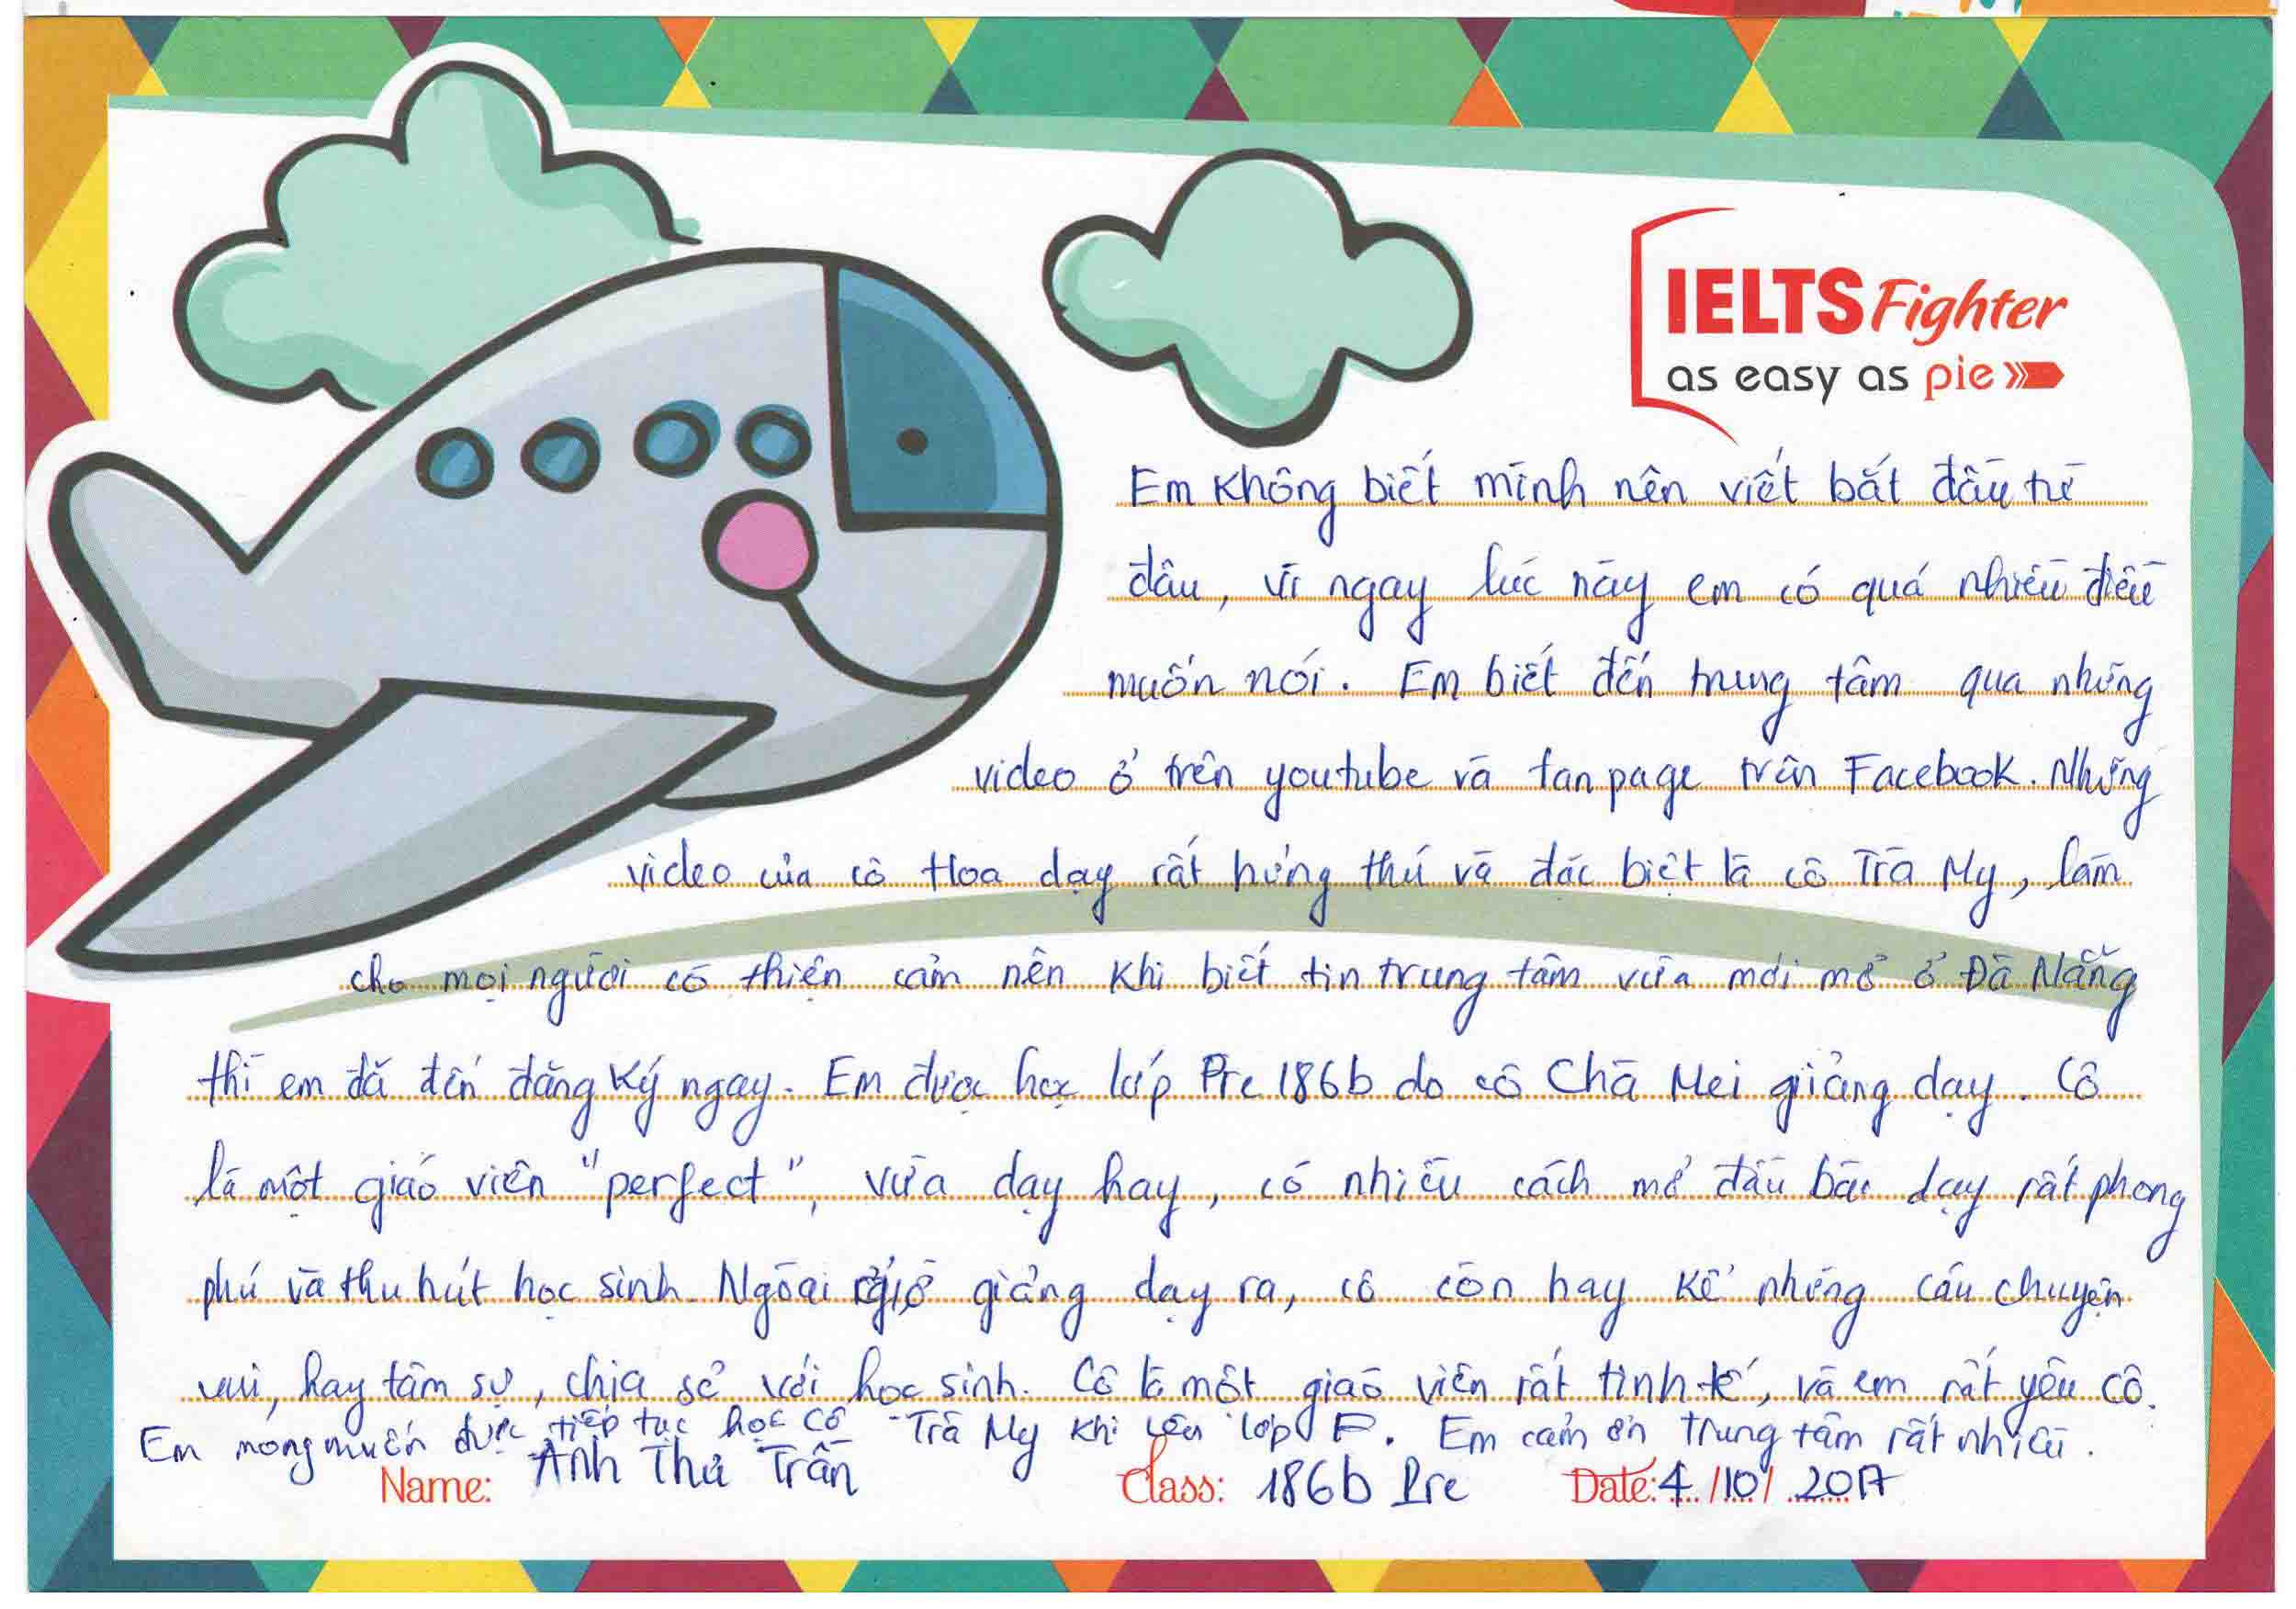 IELTS Fighter
as easy as pie
Em không biết mình nên viết bắt đầu từ
đâu, vì ngay lúc này em có quá nhiều điều
muốn nói. Em biết đến trung tâm qua những
video ở trên youtube và fanpage trên Facebook. Những
video của cô Hoa dạy rất hứng thú và đặc biệt là cô Trà My, làm
cho mọi người có thiện cảm nên khi biết tin trung tâm vừa mới mở ở Đà Nẵng
thì em đã đến đăng ký ngay. Em được học lớp Pre 186b do cô Chà Mei giảng dạy. Cô
là một giáo viên "perfect", vừa dạy hay, có nhiều cách mở đầu bài dạy rất phong
phú và thu hút học sinh. Ngoài giờ giảng dạy ra, cô còn hay kể những câu chuyện
vui, hay tâm sự, chia sẻ với học sinh. Cô là một giáo viên rất tinh tế, và em rất yêu cô.
Em mong muốn được tiếp tục học cô Trà My khi lên lớp F. Em cảm ơn trung tâm rất nhiều.
Name: Anh Thư Trần Class: 186b Pre Date: 4/10/2017